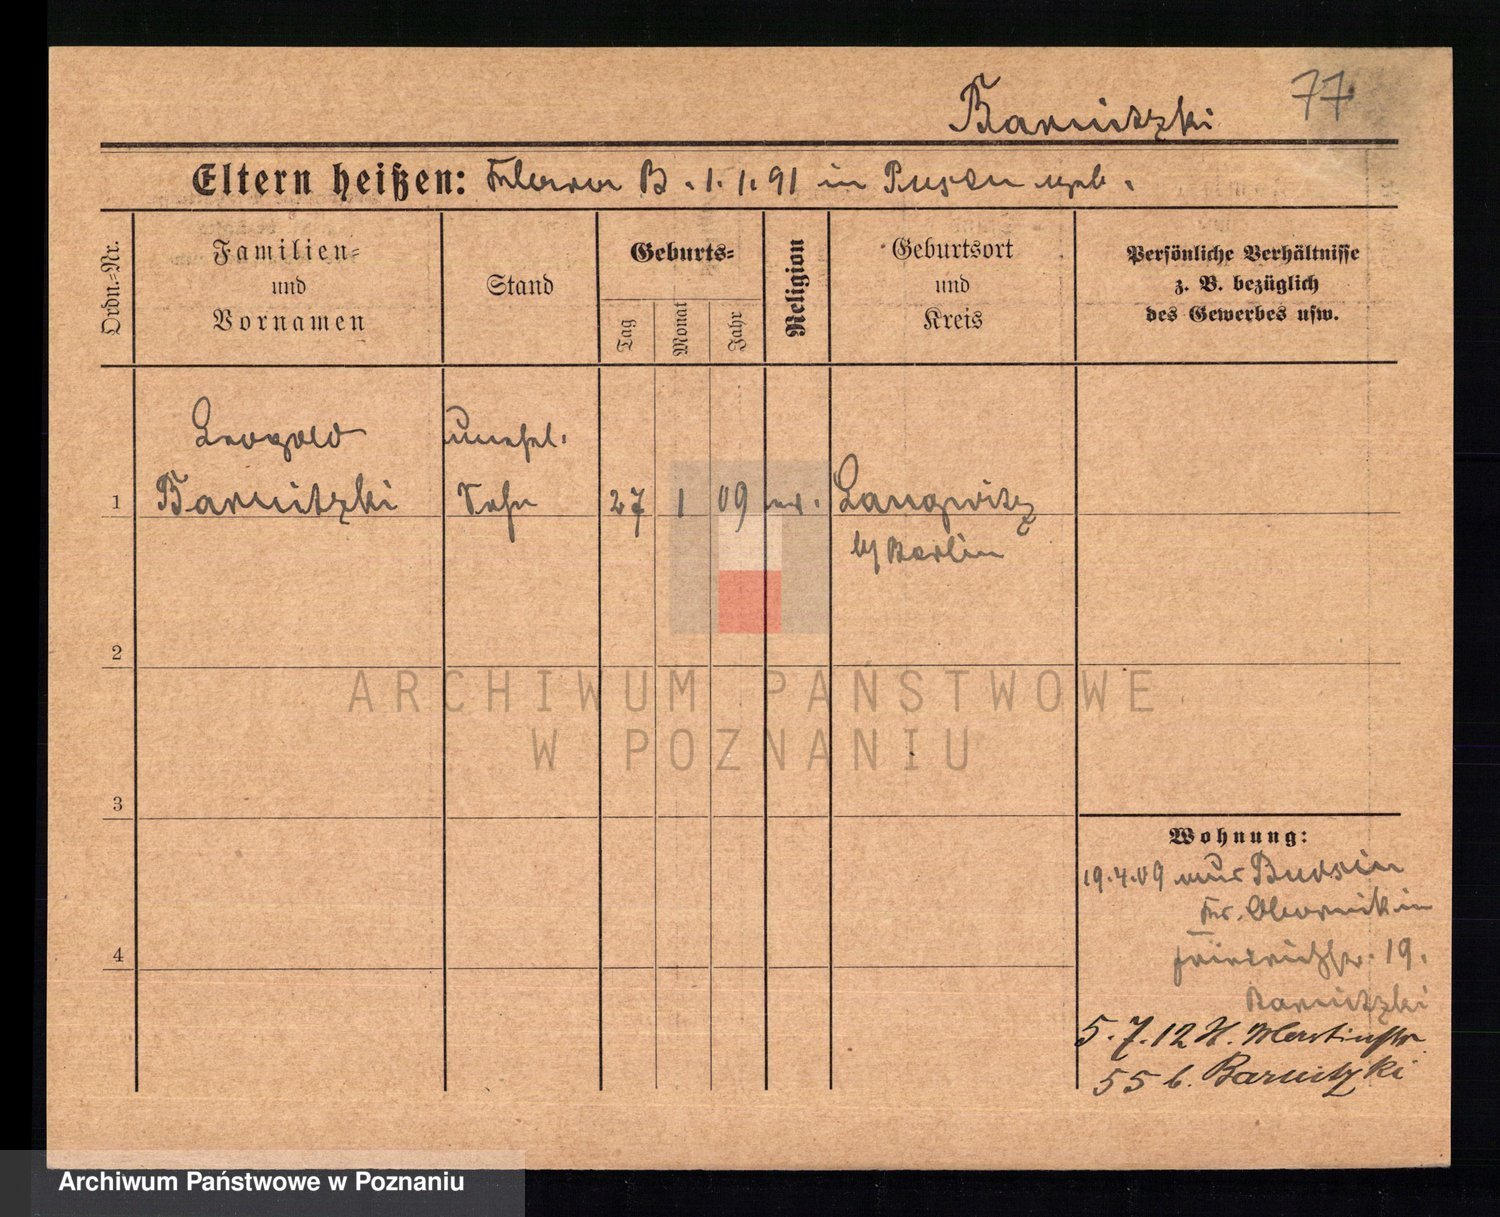 Barnitzki
77
Eltern heißen: B. 1.1.91 in Posen geb.
Ordn.-Nr.
Familien-
und
Vornamen
Stand
Geburts-
Tag
Monat
Jahr
Religion
Geburtsort
und
Kreis
Persönliche Verhältnisse
z. B. bezüglich
des Gewerbes usw.
Leopold unehel.
1 Barnitzki Sohn 27 1 09 Langwitz
b/ Berlin
2
3
4
Wohnung:
19.4.09 aus Budsin
Kr. Obornik in
Friedrichstr. 19.
Barnitzki
5.7.12 St. Martinstr
55 b. Barnitzki
ARCHIWUM PAŃSTWOWE
W POZNANIU
Archiwum Państwowe w Poznaniu